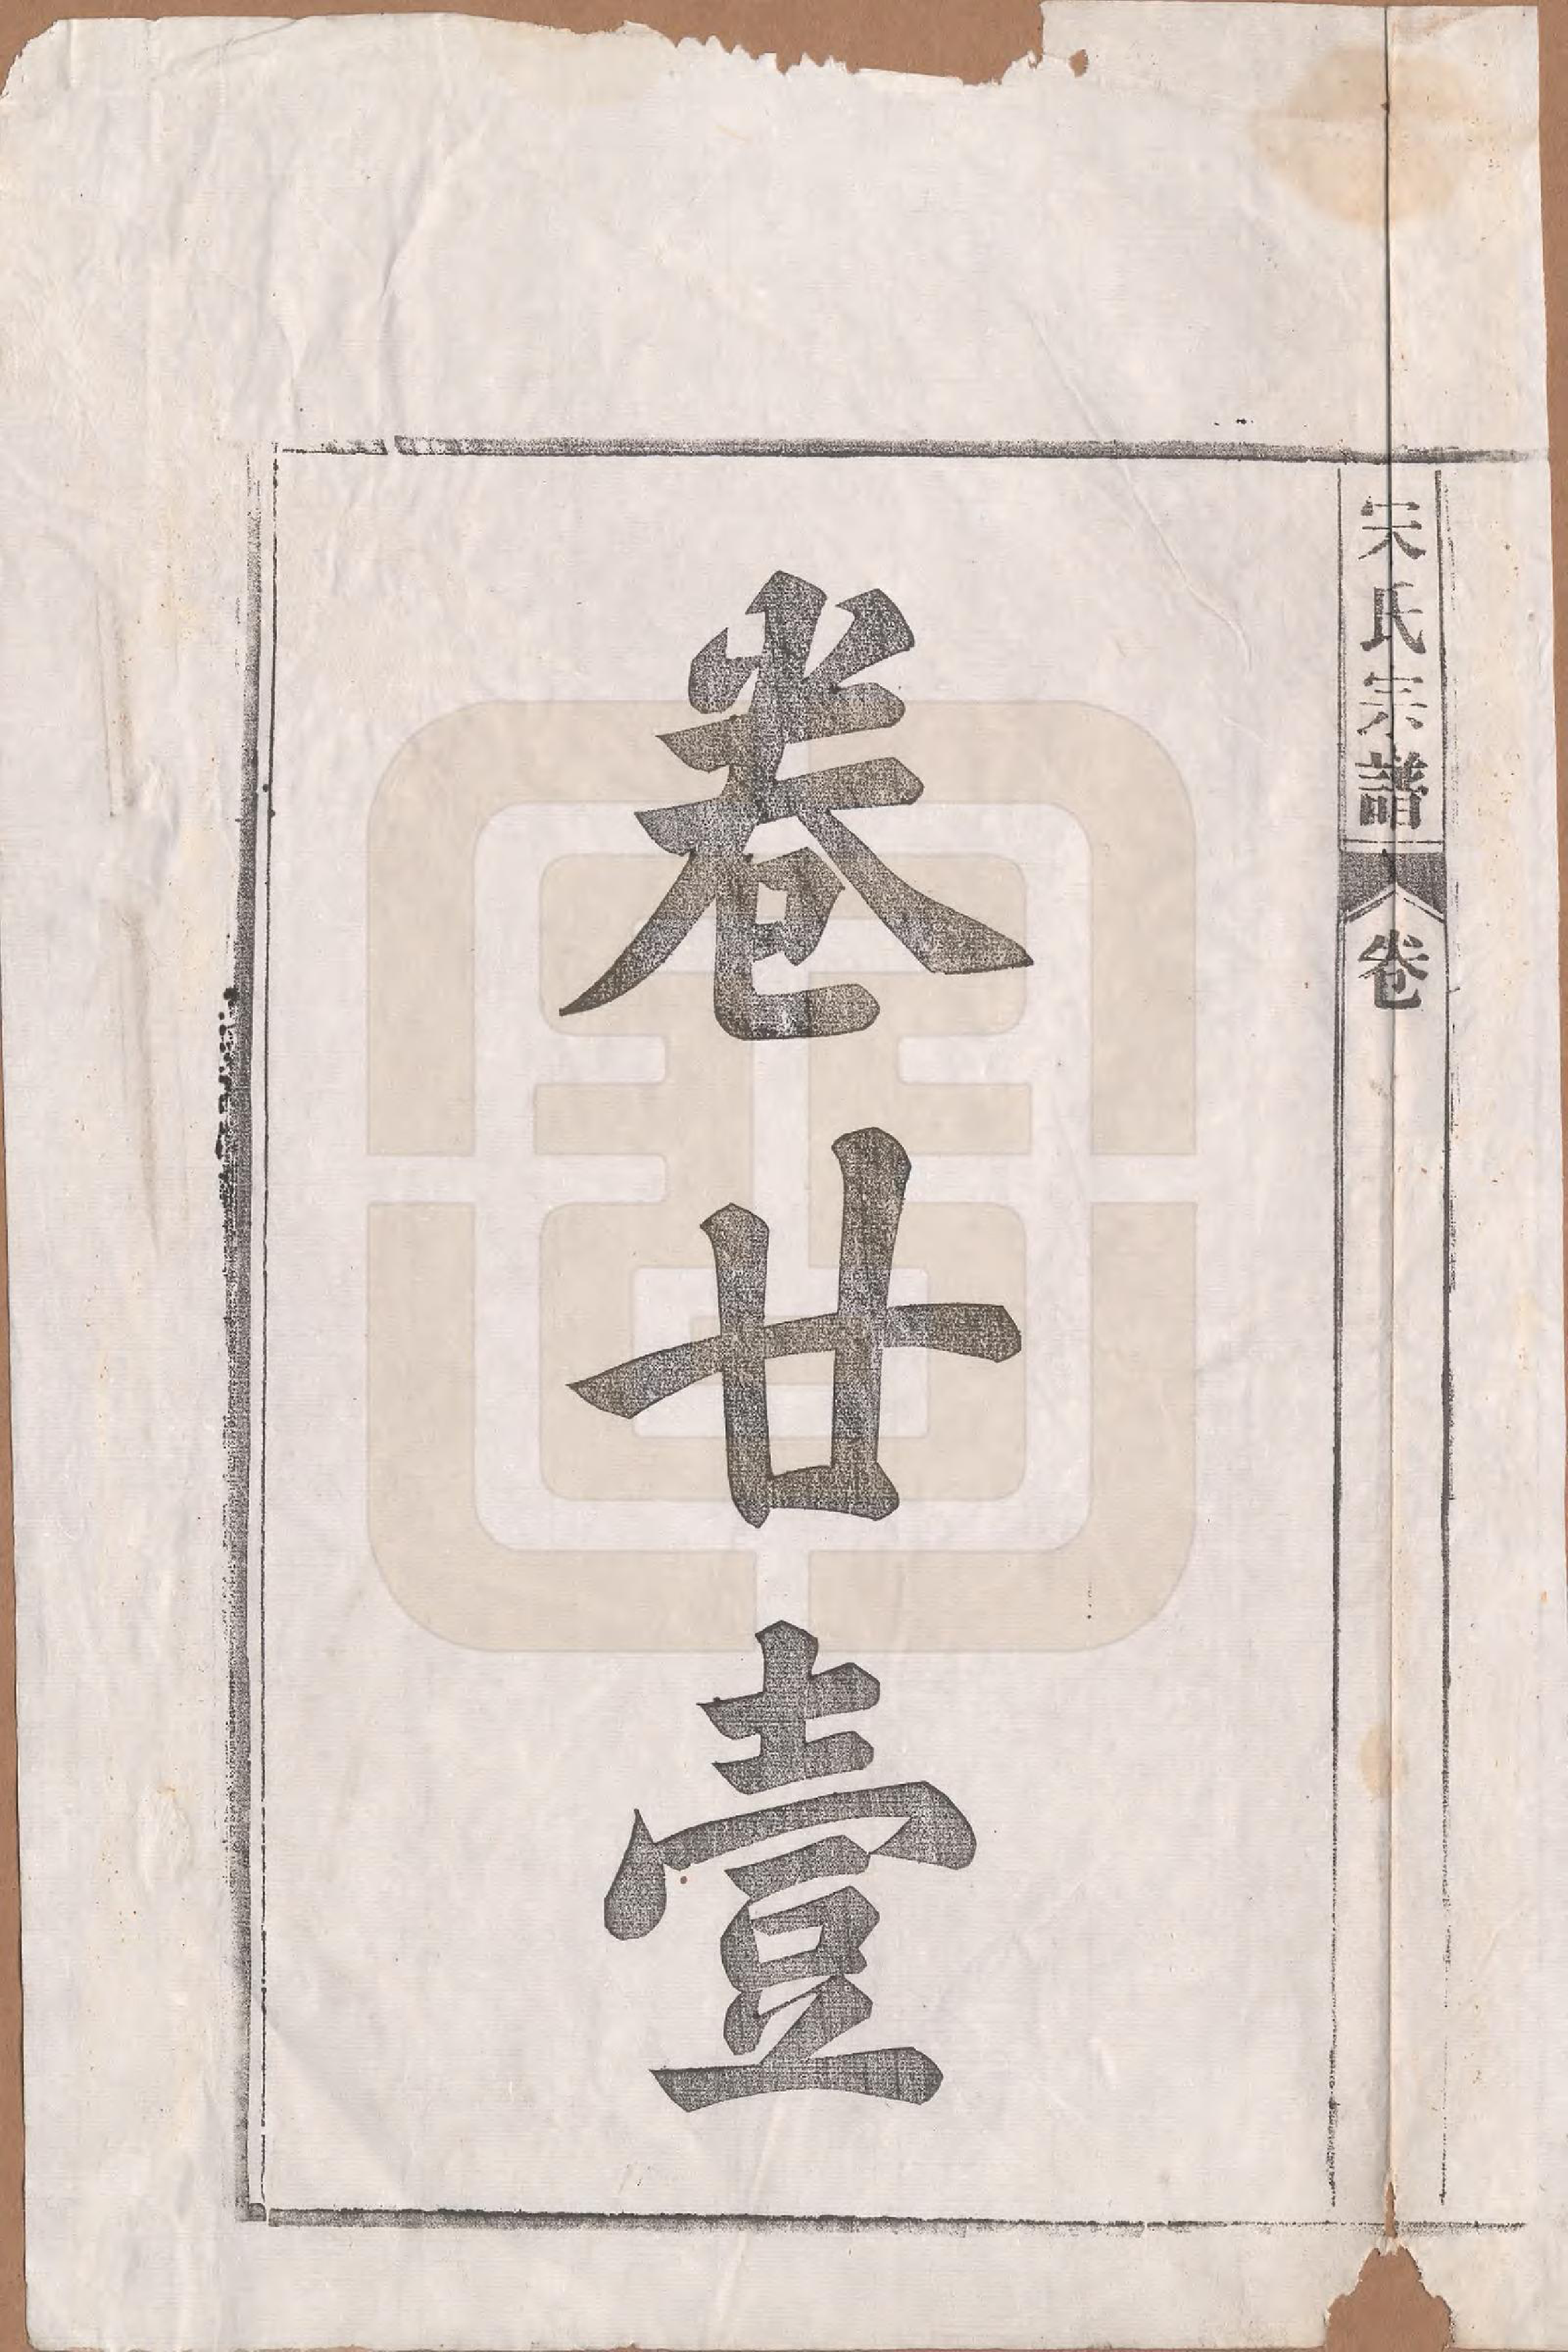 宋氏宗譜
卷
卷廿壹